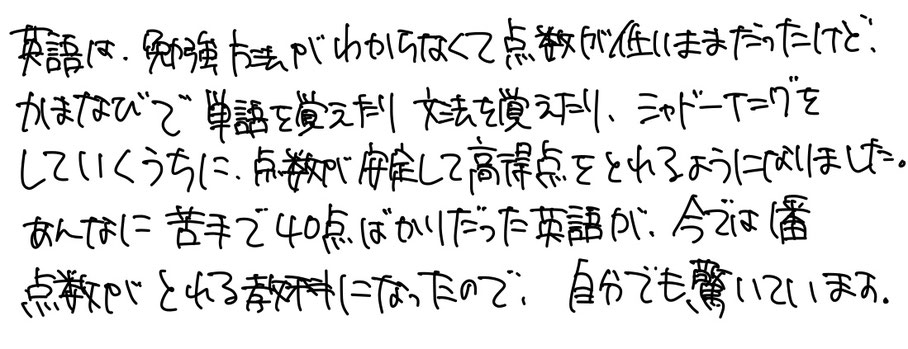 英語は、勉強方法がわからなくて点数が低いままだったけど、
かまなびで単語を覚えたり文法を覚えたり、シャドーイングを
していくうちに、点数が安定して高得点をとれるようになりました。
あんなに苦手で40点ばかりだった英語が、今では1番
点数がとれる教科になったので、自分でも驚いています。